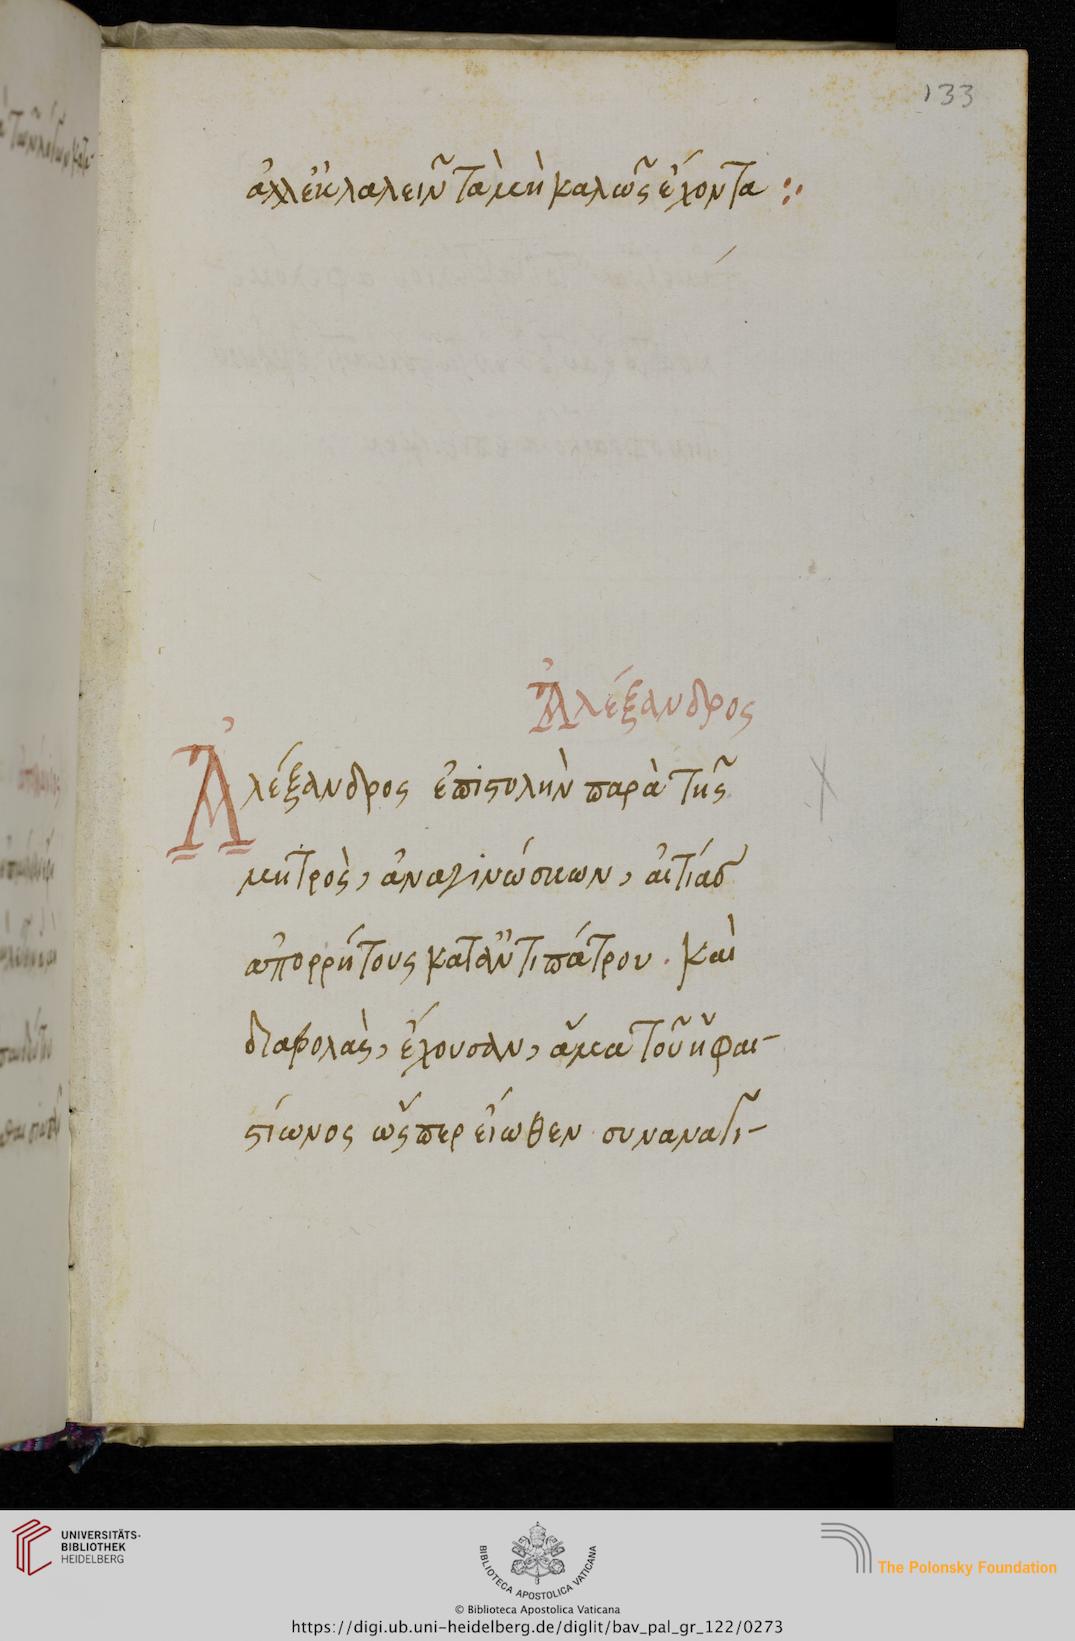 133
ἀλλ' ἐκλαλεῖν τὰ μὴ καλῶς ἔχοντα :·
Ἀλέξανδρος
Ἀλέξανδρος ἐπιστολὴν παρὰ τῆς
μητρὸς, ἀναγινώσκων, αἰτίας
ἀπορρήτους κατ' ἀντιπάτρου. καὶ
διαβολὰς, ἔχουσαν, ἅμα τοῦ ἡφαι-
στίωνος ὥσπερ εἴωθεν συναναγι-
UNIVERSITÄTS-
BIBLIOTHEK
HEIDELBERG
BIBLIOTECA APOSTOLICA VATICANA
The Polonsky Foundation
© Biblioteca Apostolica Vaticana
https://digi.ub.uni-heidelberg.de/diglit/bav_pal_gr_122/0273